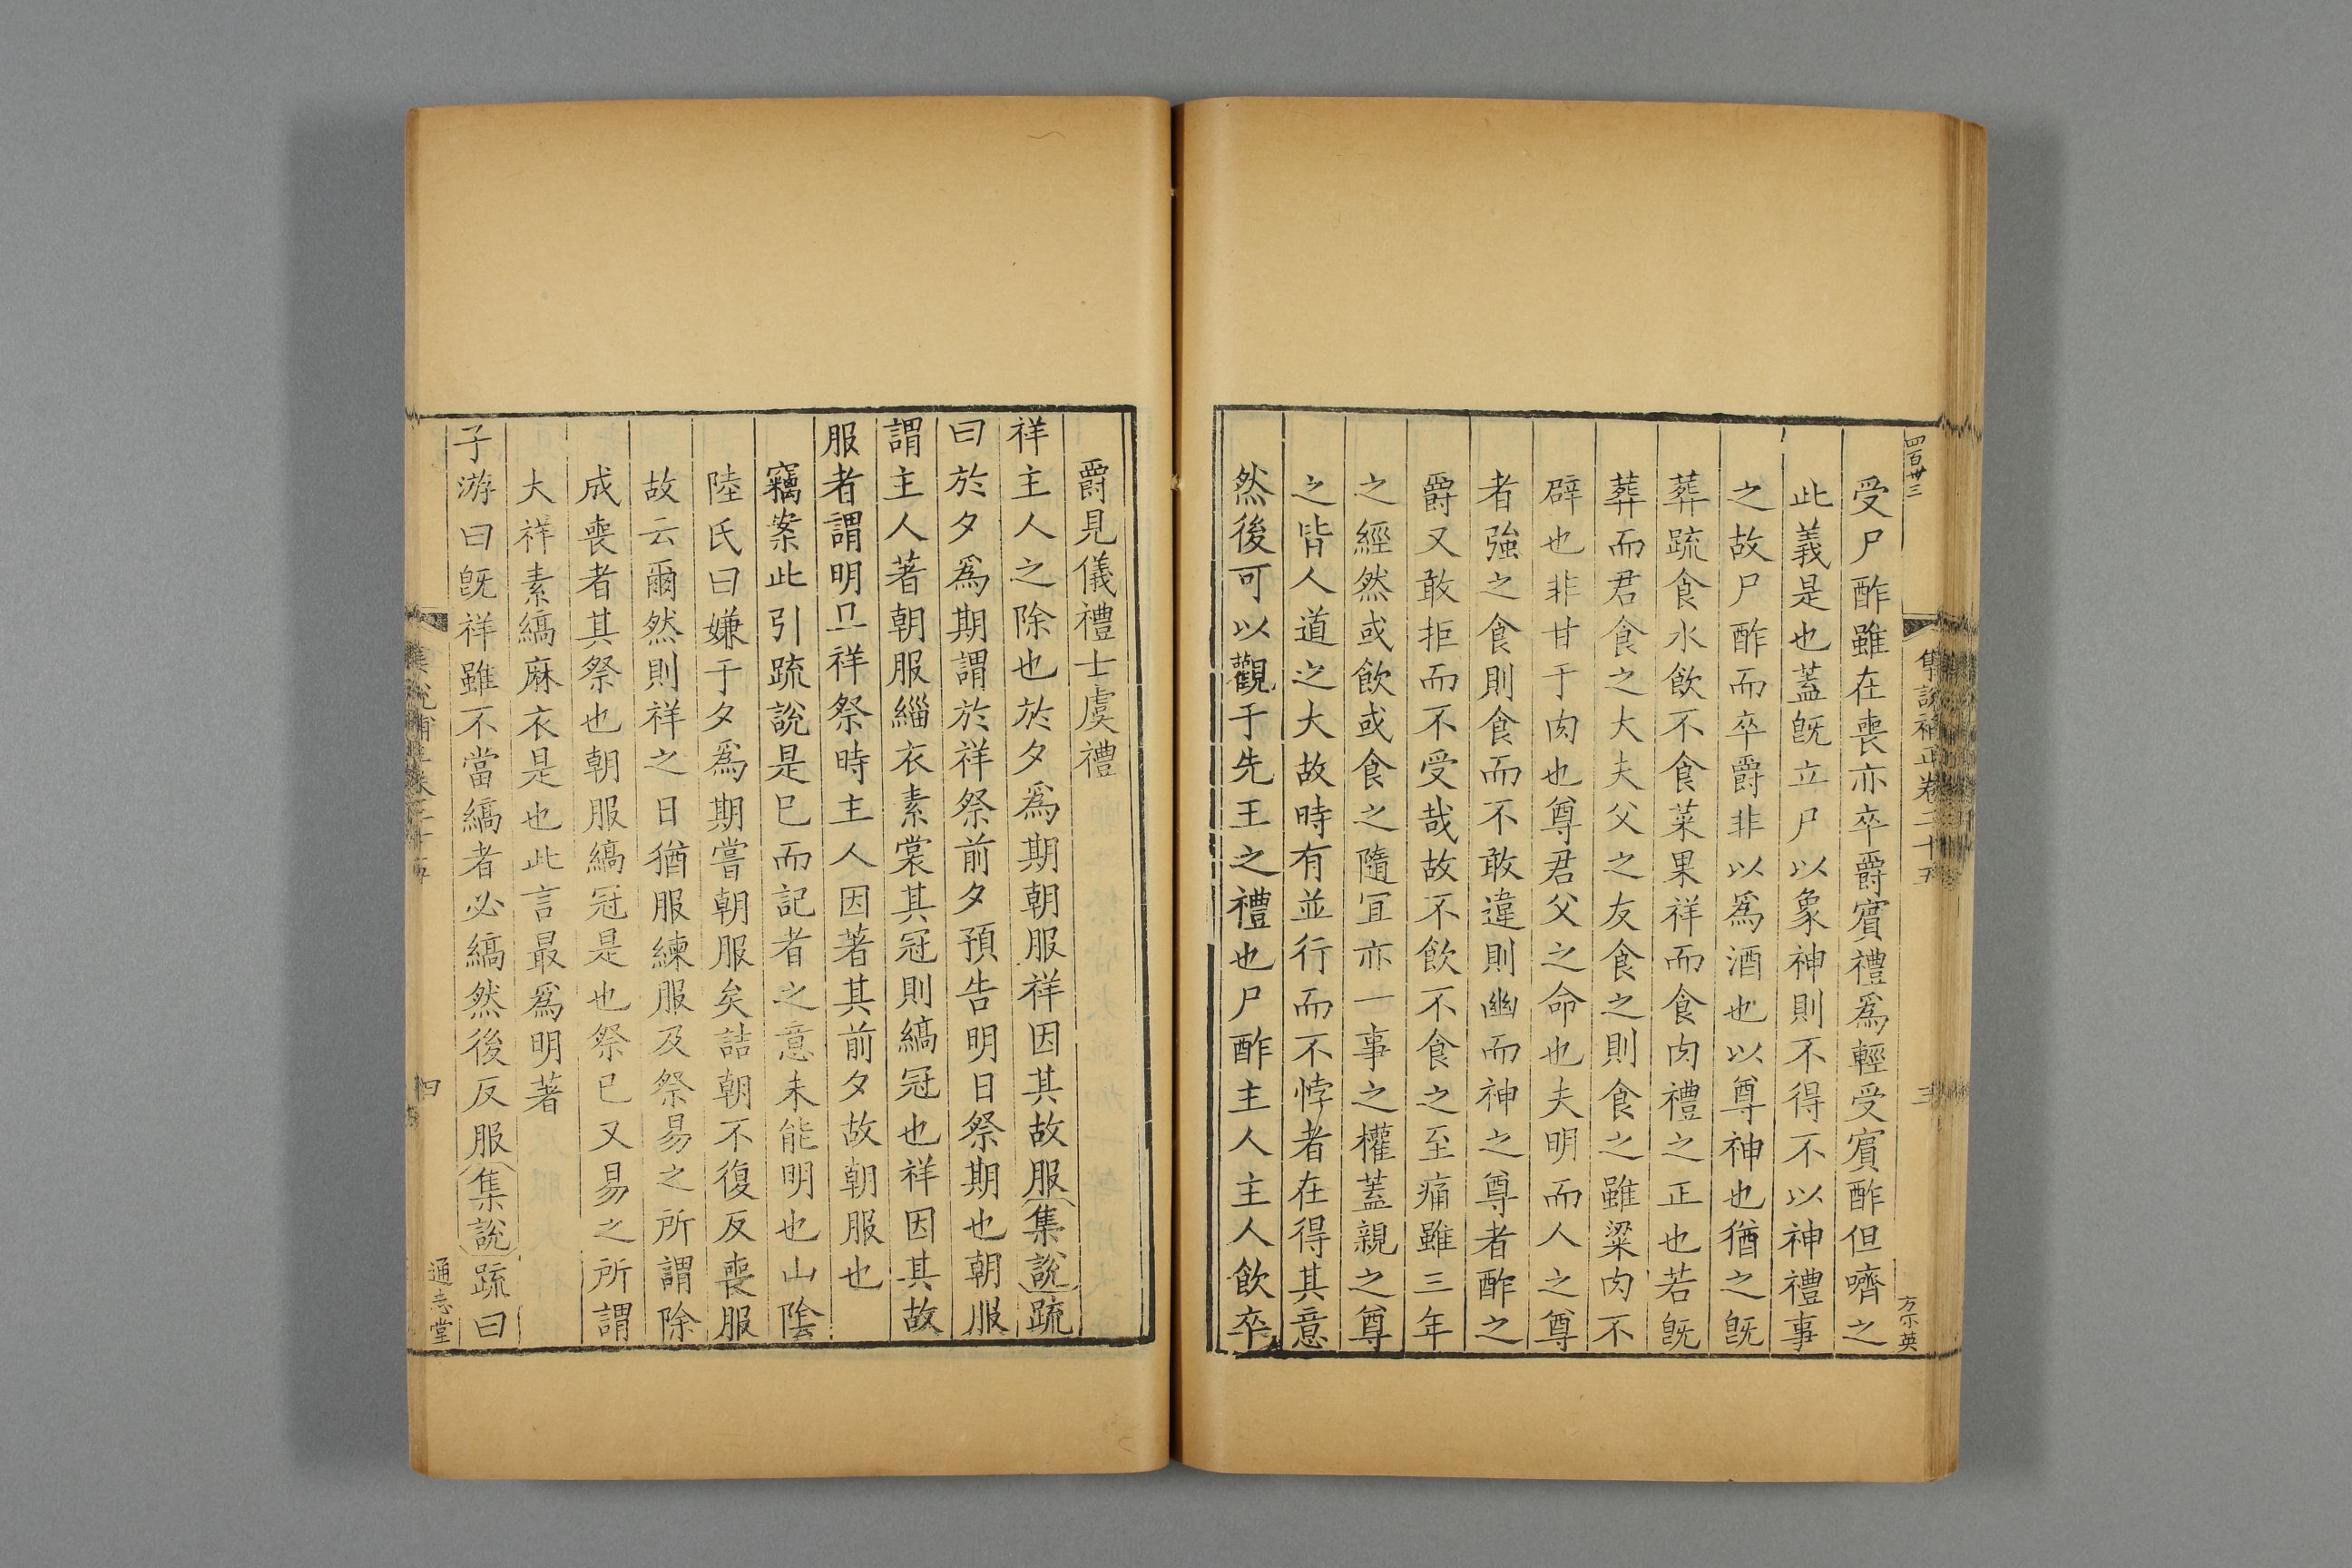 四百廿三
集説補正卷二十五
三
方宗英
受尸酢雖在喪亦卒爵賔禮爲輕受賔酢但嚌之
此義是也蓋旣立尸以象神則不得不以神禮事
之故尸酢而卒爵非以爲酒也以尊神也猶之旣
葬䟽食水飲不食菜果祥而食肉禮之正也若旣
葬而君食之大夫父之友食之則食之雖粱肉不
辟也非甘于肉也尊君父之命也夫明而人之尊
者強之食則食而不敢違則幽而神之尊者酢之
爵又敢拒而不受哉故不飲不食之至痛雖三年
之經然或飲或食之隨宜亦一事之權蓋親之尊
之皆人道之大故時有並行而不悖者在得其意
然後可以觀于先王之禮也尸酢主人主人飲卒
爵見儀禮士虞禮
祥主人之除也於夕爲期朝服祥因其故服集說䟽
曰於夕爲期謂於祥祭前夕預告明日祭期也朝服
謂主人著朝服緇衣素裳其冠則縞冠也祥因其故
服者謂明旦祥祭時主人因著其前夕故朝服也
竊案此引䟽說是已而記者之意未能明也山陰
陸氏曰嫌于夕爲期嘗朝服矣詰朝不復反喪服
故云爾然則祥之日猶服練服及祭易之所謂除
成喪者其祭也朝服縞冠是也祭已又易之所謂
大祥素縞麻衣是也此言最爲明著
子游曰旣祥雖不當縞者必縞然後反服集說䟽曰
集說補正卷二十五
四
通志堂